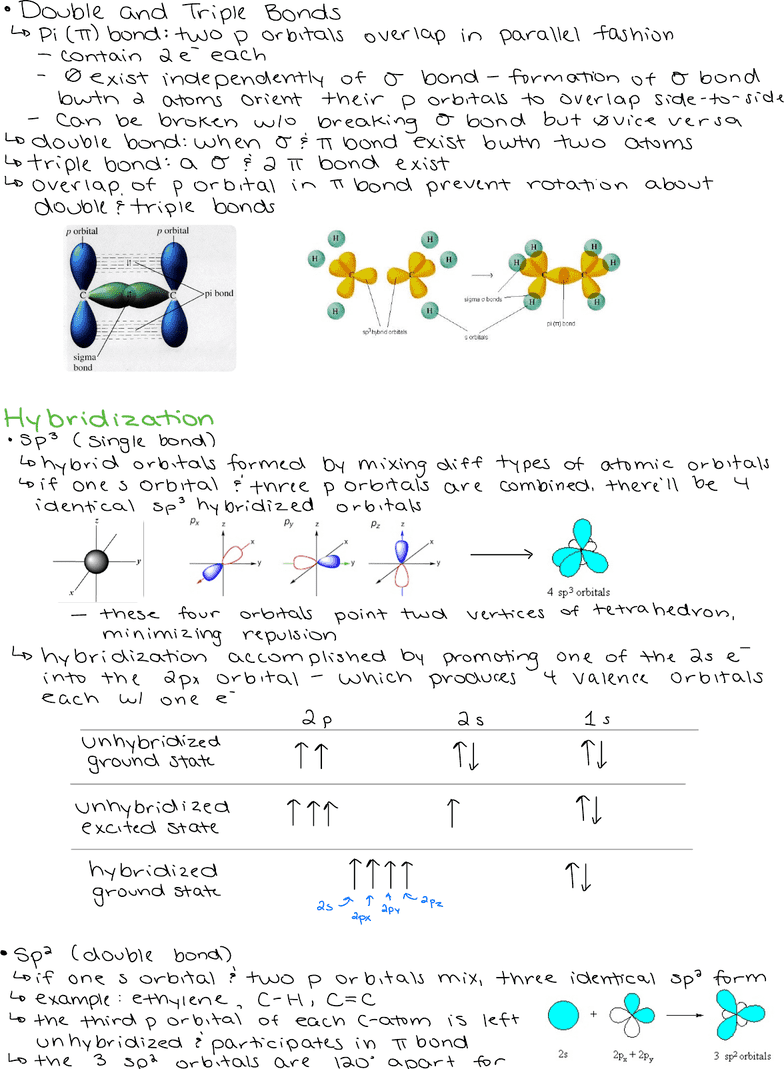 • Double and Triple Bonds
↳ Pi (π) bond: two p orbitals overlap in parallel fashion
– contain 2e⁻ each
– Ø exist independently of σ bond – formation of σ bond
bwtn 2 atoms orient their p orbitals to overlap side-to-side
– Can be broken w/o breaking σ bond but Ø vice versa
↳ double bond: when σ & π bond exist bwtn two atoms
↳ triple bond: a σ & 2 π bond exist
↳ overlap of p orbital in π bond prevent rotation about
double & triple bonds
p orbital p orbital
C C
pi bond
sigma
bond
H H H H H H H H
C C → C C
sigma σ-bonds
sp³ hybrid orbitals
s orbitals
pi (π) bond
Hybridization
• Sp³ (Single bond)
↳ hybrid orbitals formed by mixing diff types of atomic orbitals
↳ if one s orbital & three p orbitals are combined, there'll be 4
identical sp³ hybridized orbitals
z y x
Px z x y
Py z x y
Pz z x y
4 sp³ orbitals
– these four orbitals point twd vertices of tetrahedron,
minimizing repulsion
↳ hybridization accomplished by promoting one of the 2s e⁻
into the 2px orbital – which produces 4 valence orbitals
each w/ one e⁻
2p 2s 1s
unhybridized
ground state ↑↑ ↑↓ ↑↓
unhybridized
excited state ↑↑↑ ↑ ↑↓
hybridized
ground state ↑↑↑↑ ↑↓
2s 2px 2py 2pz
• Sp² (double bond)
↳ if one s orbital & two p orbitals mix, three identical sp² form
↳ example: ethylene, C-H, C=C
↳ the third p orbital of each C-atom is left
unhybridized & participates in π bond
↳ the 3 sp² orbitals are 120° apart for
+ →
2s 2px + 2py 3 sp² orbitals